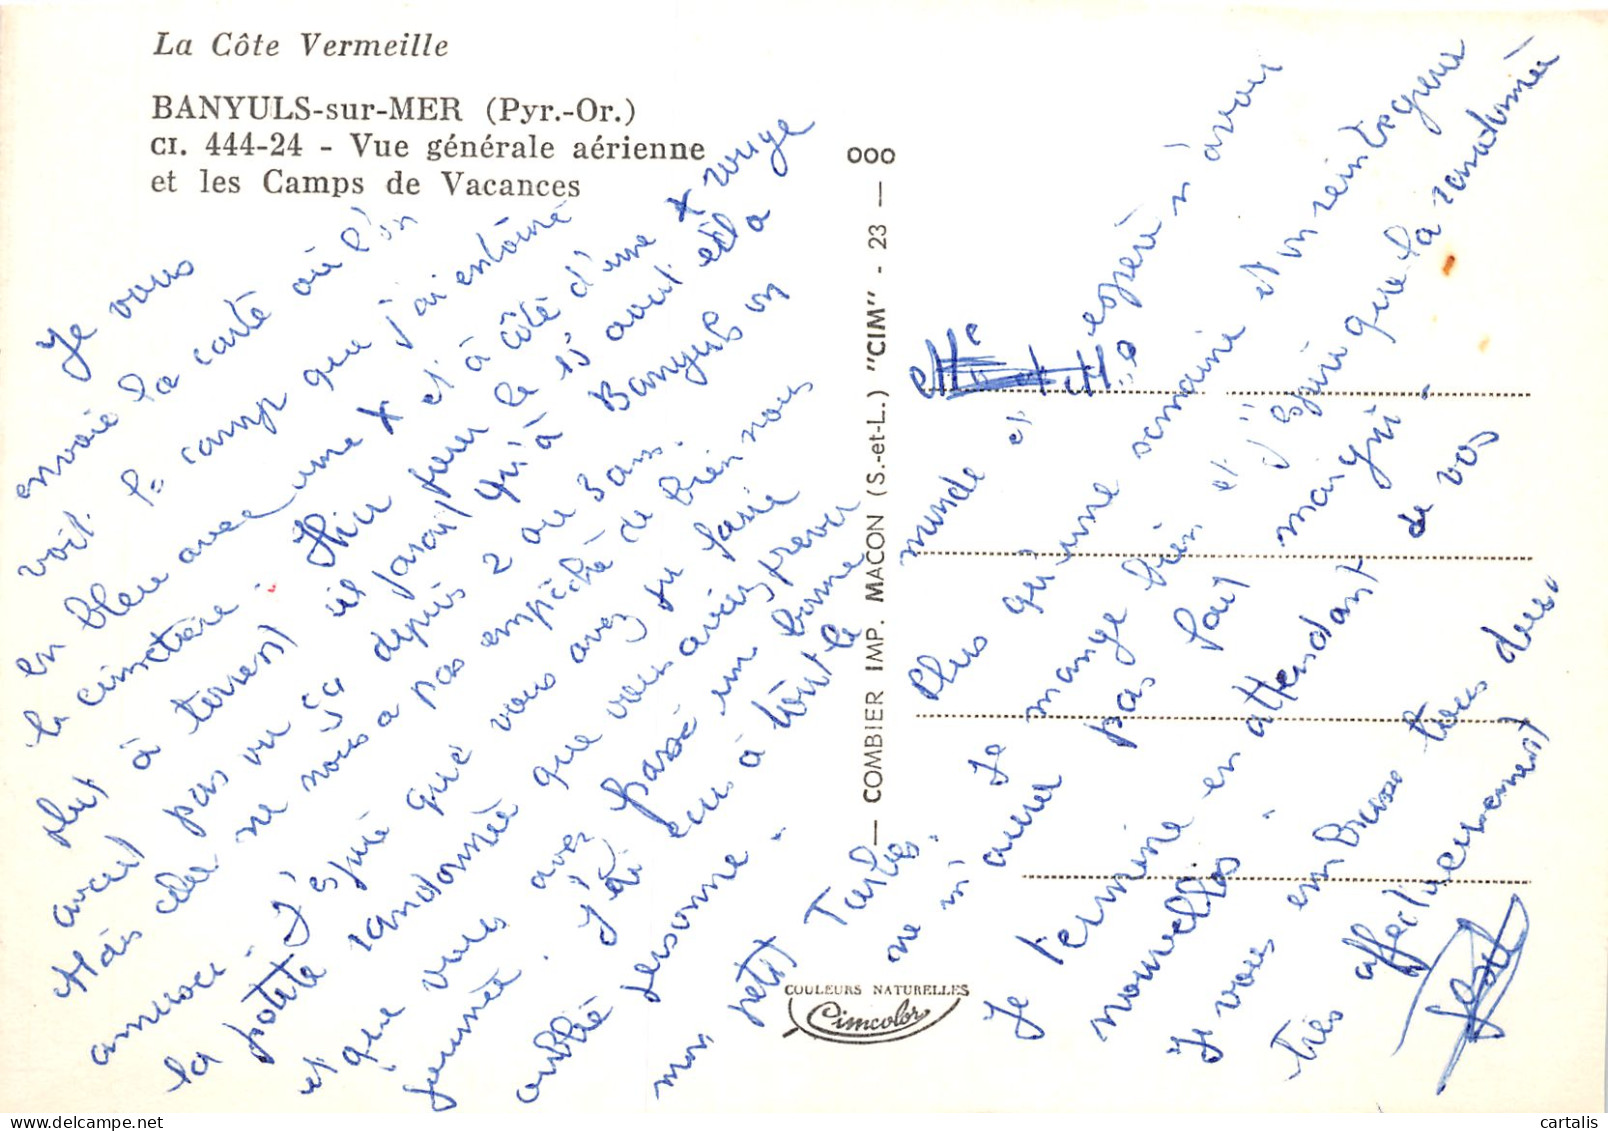 La Côte Vermeille
BANYULS-sur-MER (Pyr.-Or.)
CI. 444-24 - Vue générale aérienne
et les Camps de Vacances
Je vous
envoie la carte où l'on
voit le camp que j'ai entouré
en bleu avec une x et à côté d'une x rouge
le cimetière. Hier pour le 15 août il a
plut à torrent il parait qu'à Banyuls on
avait pas vu ça depuis 2 ou 3 ans.
Mais cela ne nous a pas empêché de bien nous
amusé. J'espère que vous avez pu faire
la petite randonnée que vous aviez prévu
et que vous avez passé une bonne
journée. J'ai écris à tout le
monde et espère n'avoir
oublié personne. Plus qu'une semaine et on reintegrera
mon petit Tarbes. Je mange bien et j'espère que la randonnée
ne m'aura pas fait maigrir.
Je termine en attendant de vos
nouvelles.
Je vous embrasse tous deux
très affectueusement
COMBIER IMP. MACON (S.-et-L.) "CIM" - 23 — 000
COULEURS NATURELLES
Cimcolor
cartalis.com